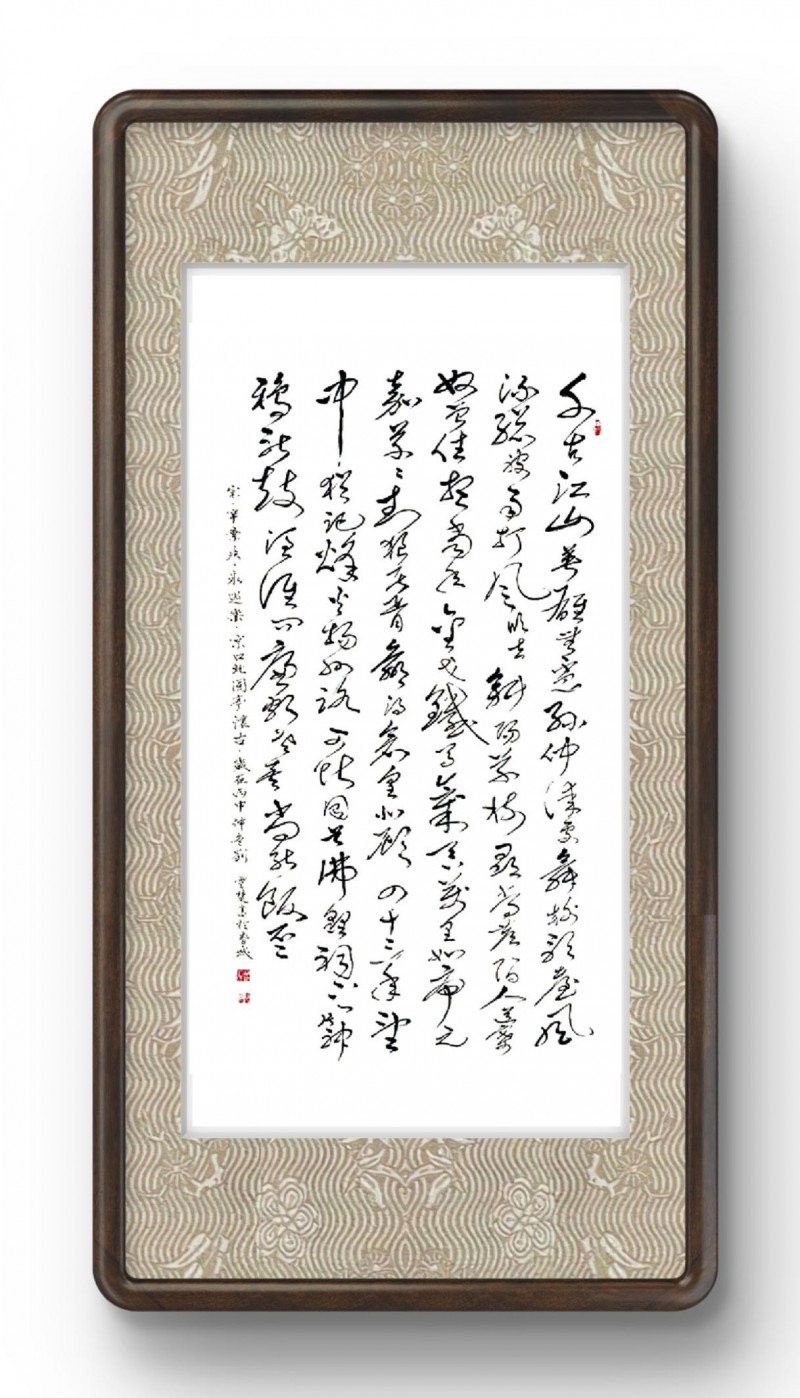 千古江山英雄無覓孫仲謀處舞榭歌臺風
流總被雨打風吹去斜陽草樹尋常巷陌人道寄
奴曾住想當年金戈鐵馬氣吞萬里如虎元
嘉草々封狼居胥贏得倉皇北顧四十三年望
中猶記烽火揚州路可堪回首佛貍祠下一片神
鴉社鼓憑誰問廉頗老矣尚能飯否
宋·辛棄疾·永遇樂·京口北固亭懷古·歲在丙申仲春 書於春城